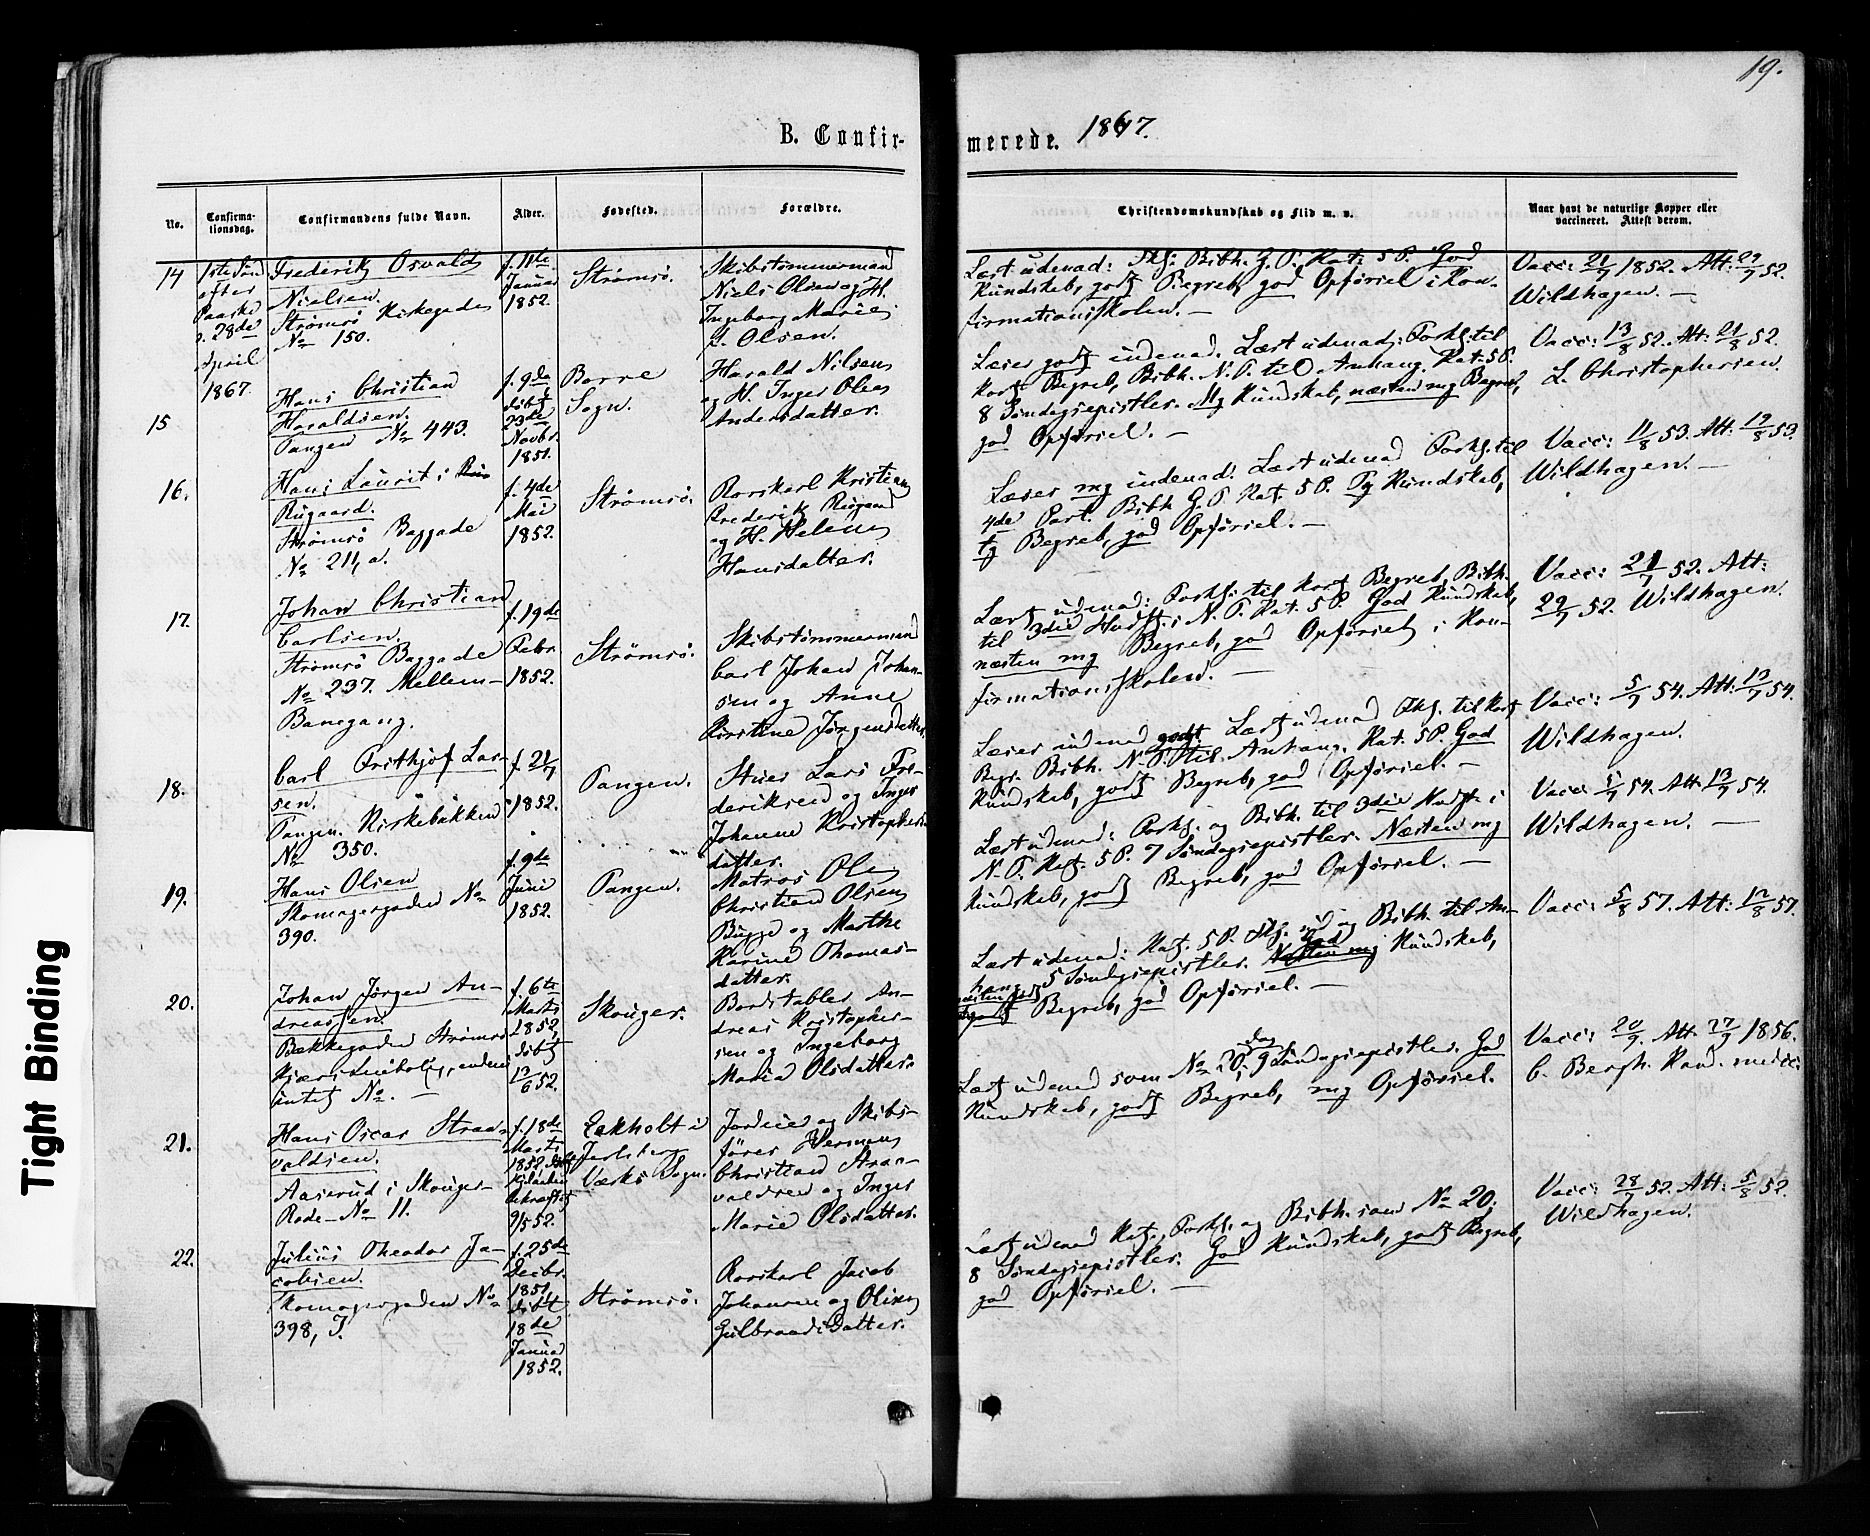 19.
B. Confirmerede. 1867.
No.
Confirmationsdag.
Confirmandens fulde Navn.
Alder.
Fødested.
Forældre.
Christendomskundskab og Flid m. v.
Naar havt de naturlige Kopper eller vaccineret. Attest derom.
14
1ste Sønd
efter
Paaske
28de
April
1867.
Frederik Osvald
Nielsen.
Strømsø Kirkegade
No 150.
f. 11te
Januar
1852.
Strømsø.
Skibstømmermand
Niels Olsen og H.
Ingeborg Marie
Olsen.
Læst udenad: Bibh. G. T. Kat. 5 P. God
Kundskab, godt Begreb, god Opførsel i Kon-
firmationsskolen. —
Vacc: 21/7 1852. Att: 29/7 52.
Wildhagen. —
15
Hans Christian
Haraldsen.
Tangen No 443.
f. 9de
døbt
23de
Novbr.
1851.
Borre
Sogn.
Harald Nilsen
og H. Inger Olea
Andersdatter.
Læser godt udenad. Læst udenad: Forkl. til
kort Begreb, Bibh. N. T. til Anhang. Kat. 5 P.
8 Søndagsepistler. Mg Kundskab, næsten mg Begreb,
god Opførsel. —
Vacc: 13/8 52. Att: 21/8 52.
L. Christophersen.
16.
Hans Laurits
Rugaard.
Strømsø Baggade
No 211, a.
f. 4de
Mai
1852.
Strømsø.
Rorskarl Kristian
Frederik Rugaard
og H. Helene
Hansdatter.
Læser mg udenad. Læst udenad Forkl. til
4de Part. Bibh G. T. Kat. 5 P. Tg Kundskab,
tg Begreb, god Opførsel. —
Vacc: 11/8 53. Att: 19/8 53.
Wildhagen. —
17.
Johan Christian
Carlsen.
Strømsø Baggade
No 237. Mellem-
Banegang.
f. 19de
Febr.
1852.
Strømsø.
Skibstømmermand
Carl Johan Johan-
sen og Anne
Kirstine Jørgensdatter
Læst udenad: Forkl. til kort Begreb, Bibh.
til 3die Hovdst. i N. T. Kat. 5 P. God Kundskab,
næsten mg Begreb, god Opførsel i Kon-
firmationsskolen. —
Vacc: 21/7 52. Att:
29/7 52. Wildhagen.
18.
Carl Frithjof Lar-
sen.
Tangen. Kirkebakken
No 350.
f. 21/7
1852.
Tangen.
Stuer Lars Fre-
deriksen og Inger
Johanne Kristophers-
datter.
Læser udenad godt. Læst udenad Fkl. til kort
Begr. Bibh. N. T. til Anhang. Kat. 5 P. God
Kundskab, godt Begreb, god Opførsel. —
Vacc: 5/7 54. Att: 13/7 54.
Wildhagen.
19.
Hans Olsen
Skomagergaden No
390.
f. 9de
Juni
1852.
Tangen.
Matros Ole
Christian Olsen
Bugge og Marthe
Karine Thomas-
datter.
Læst udenad: Forkl. og Bibh. til 3die Hovdst. i
N. T. Kat. 5 P. 7 Søndagsepistler. Næsten mg
Kundskab, godt Begreb, god Opførsel. —
Vacc: 5/7 54. Att: 13/7 54.
Wildhagen. —
20.
Johan Jørgen An-
dreassen.
Bækkegaden Strømsø
intet No. —
f. 6te
Marts
1852
døbt
13/6 52.
Skouger.
Bordstabler An-
dreas Kristopher-
sen og Ingeborg
Maria Olsdatter.
Læst udenad: Kat. 5 P. Fkl. ud og Bibh. til An-
hang. 5 Søndagsepistler. God Næsten mg Kundskab,
godt Begreb, god Opførsel. —
Vacc: 5/8 57. Att: 12/8 57.
21.
Hans Oscar Straa-
valdsen.
Aaserud i Skouger-
Rode - No 11.
f. 18de
Marts
1852
9/5 52.
Eekholt i
Jarlsberg
Værks Sogn.
Fordum Skibs-
fører Herman
Christian Straa-
valdsen og Inger
Marie Olsdatter.
Læst udenad som No 20, 9 Søndagsepistler. God
Kundskab, godt Begreb, mg Opførsel.
Vacc: 20/7. Att. 27/7 1856.
C. Bergh. Kand. medic.
22.
Julius Theodor Ja-
cobsen.
Skomagergaden No
398, I.
f. 25de
Decbr.
1851
døbt
18de
Januar
1852.
Strømsø.
Rorskarl Jacob
Johansen og Oline
Gulbrandsdatter.
Læst udenad Kat. Forkl. og Bibh. som No 20;
8 Søndagsepistler. God Kundskab, godt Begreb,
god Opførsel. —
Vacc: 28/7 52. Att: 5/8 52.
Wildhagen.
Tight Binding